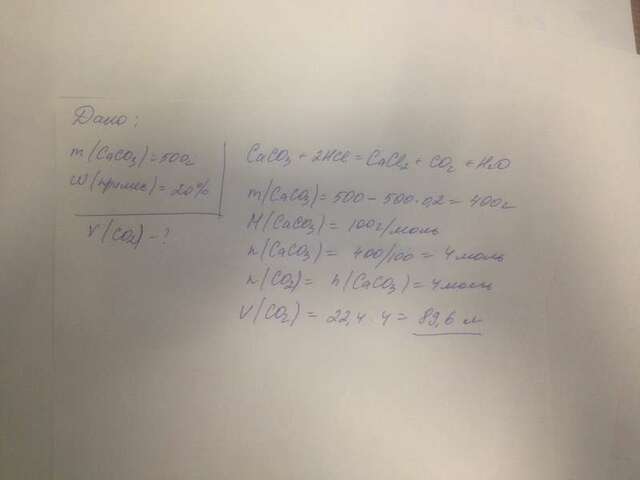 Дано:
m(CaCO3)=500г
W(примес)=20%
V(CO2)-?
CaCO3+2HCl=CaCl2+CO2+H2O
m(CaCO3)=500-500·0,2=400г
M(CaCO3)=100г/моль
n(CaCO3)=400/100=4моль
n(CO2)=n(CaCO3)=4моль
V(CO2)=22,4·4=89,6л